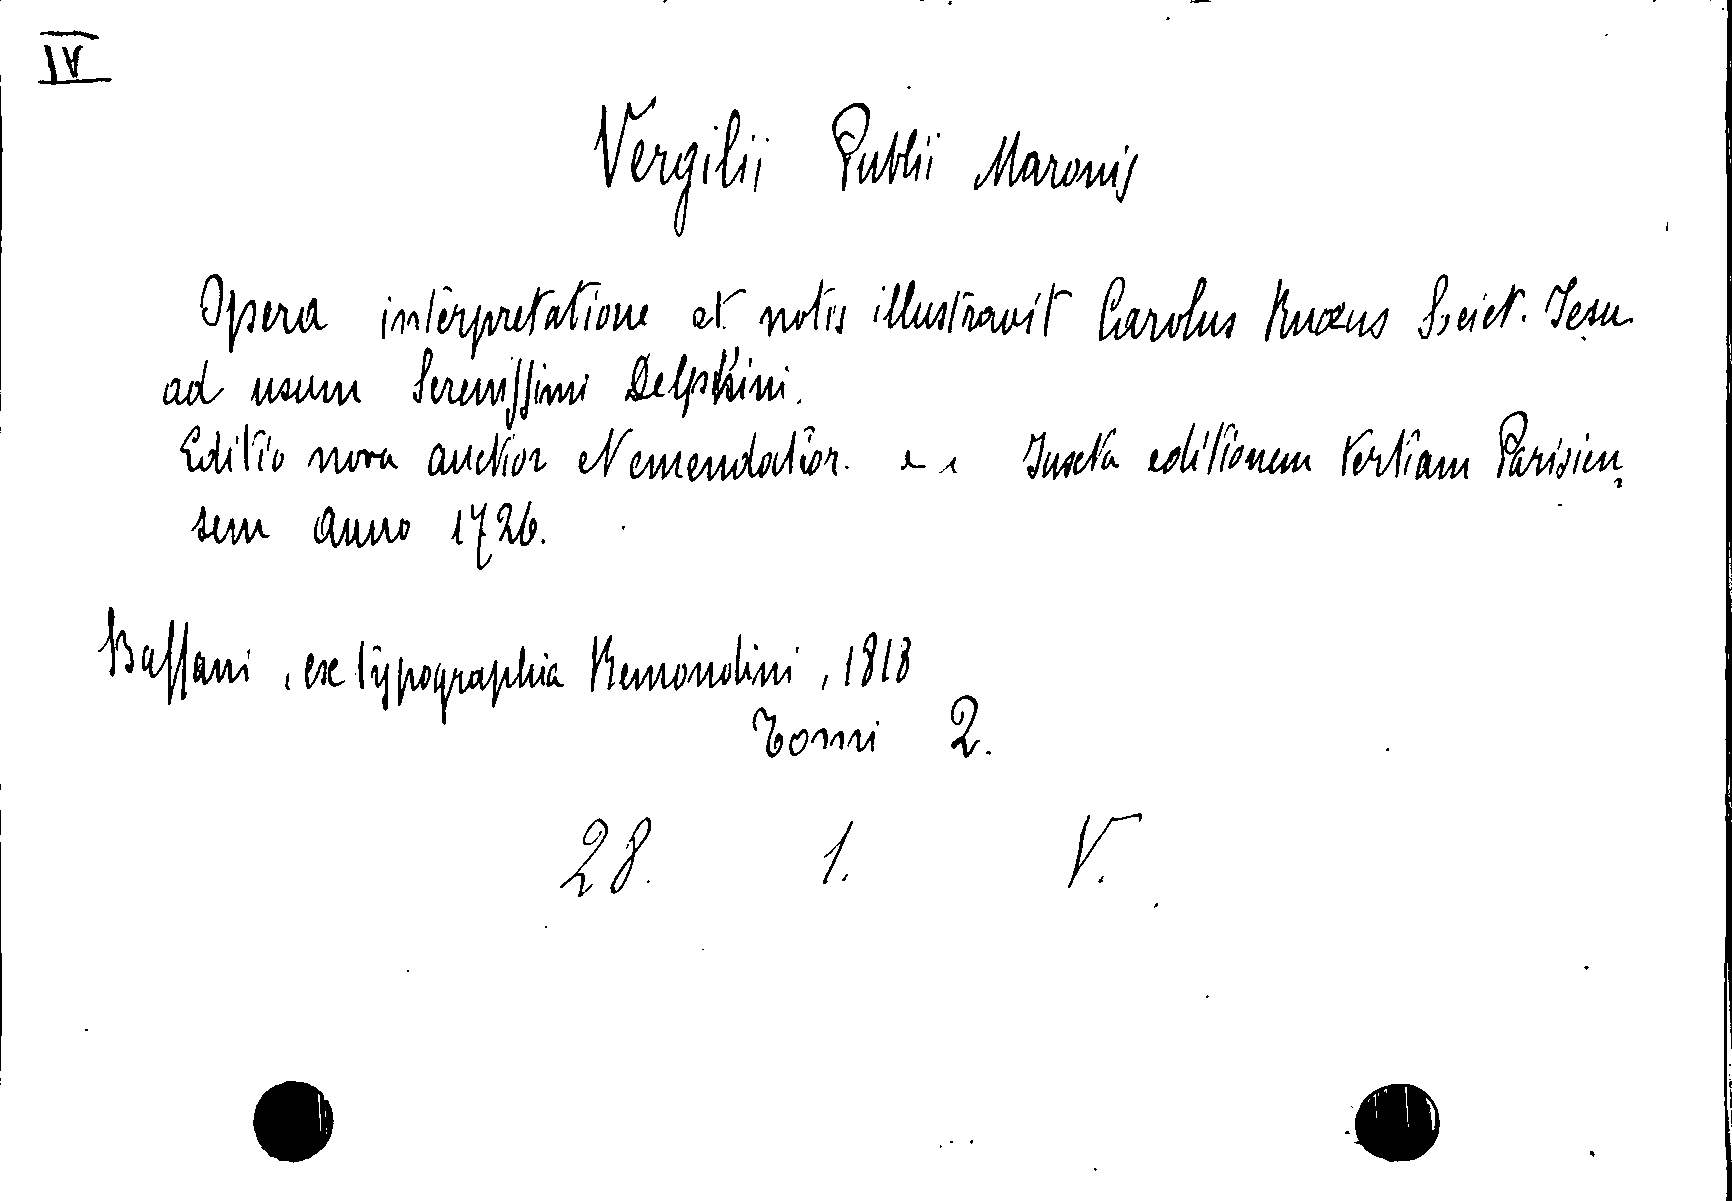 IV
Vergilii Publii Maronis
Opera interpretatione et notis illustravit Carolus Ruæus Societ. Jesu
ad usum Serenissimi Delphini.
Editio nova auctior et emendatior. Juxta editionem tertiam Parisien,
sem anno 1726.
Bassani, ex typographia Remondini, 1818
Tomi 2.
28. 1. V.